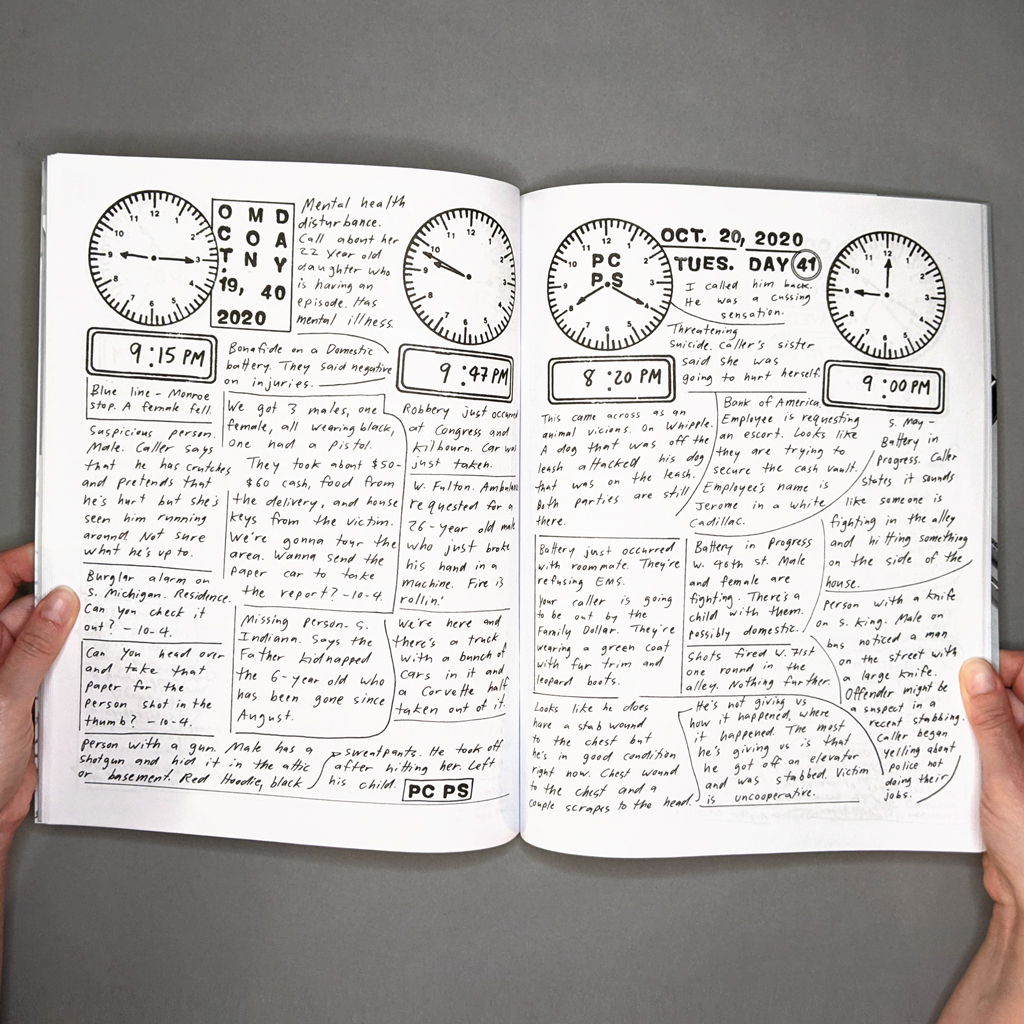 OCT. 19,
MON
DAY 40
2020
Mental health
disturbance.
Call about her
22 year old
daughter who
is having an
episode. Has
mental illness.
9:15 PM
9:47 PM
Bonafide on a Domestic
battery. They said negative
on injuries.
Blue line - Monroe
stop. A female fell.
Suspicious person.
Male. Caller says
that he has crutches
and pretends that
he's hurt but she's
seen him running
around. Not sure
what he's up to.
Burglar alarm on
S. Michigan. Residence.
Can you check it
out? - 10-4.
Can you head over
and take that
paper for the
person shot in the
thumb? - 10-4.
We got 3 males, one
female, all wearing black,
one had a pistol.
They took about $50-
$60 cash, food from
the delivery, and house
keys from the victim.
We're gonna tour the
area. Wanna send the
paper car to take
the report? - 10-4.
Missing person - S.
Indiana. Says the
Father kidnapped
the 6-year old who
has been gone since
August.
Robbery just occurred
at Congress and
Kilbourn. Car was
just taken.
W. Fulton. Ambulance
requested for a
26-year old male
who just broke
his hand in a
machine. Fire is
rollin'.
We're here and
there's a truck
with a bunch of
cars in it and
a Corvette half
taken out of it.
person with a gun. Male has a
shotgun and hid it in the attic
or basement. Red Hoodie, black
sweatpants. He took off
after hitting her. Left
his child.
PC PS
12
1
2
3
4
5
6
7
8
9
10
11
PC
P.S
OCT. 20, 2020
TUES. DAY 41
I called him back.
He was a cussing
sensation.
8:20 PM
9:00 PM
Threatening
suicide. Caller's sister
said she was
going to hurt herself.
This came across as an
animal vicious. On Whipple.
A dog that was off the
leash attacked his dog
that was on the leash.
Both parties are still
there.
Battery just occurred
with roommate. They're
refusing EMS.
Your caller is going
to be out by the
Family Dollar. They're
wearing a green coat
with fur trim and
leopard boots.
Looks like he does
have a stab wound
to the chest but
he's in good condition
right now. Chest wound
to the chest and a
couple scrapes to the head.
Bank of America.
Employee is requesting
an escort. Looks like
they are trying to
secure the cash vault.
Employee's name is
Jerome in a white
Cadillac.
Battery in Progress
W. 46th St. Male
and female are
fighting. There's a
child with them.
possibly domestic.
Shots fired W. 71st
one round in the
alley. Nothing further.
He's not giving us
how it happened, where
it happened. The most
he's giving us is that
he got off an elevator
and was stabbed. Victim
is uncooperative.
S. May -
Battery in
Progress. Caller
states it sounds
like someone is
fighting in the alley
and hitting something
on the side of the
house.
person with a knife
on S. King. Male on
bus noticed a man
on the street with
a large knife.
Offender might be
a suspect in a
recent stabbing.
Caller began
yelling about
police not
doing their
jobs.